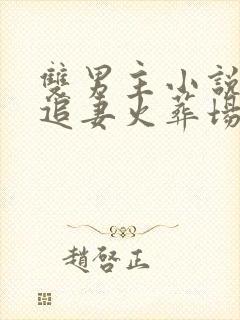 雙男主小說
追妻火葬場
趙啓正